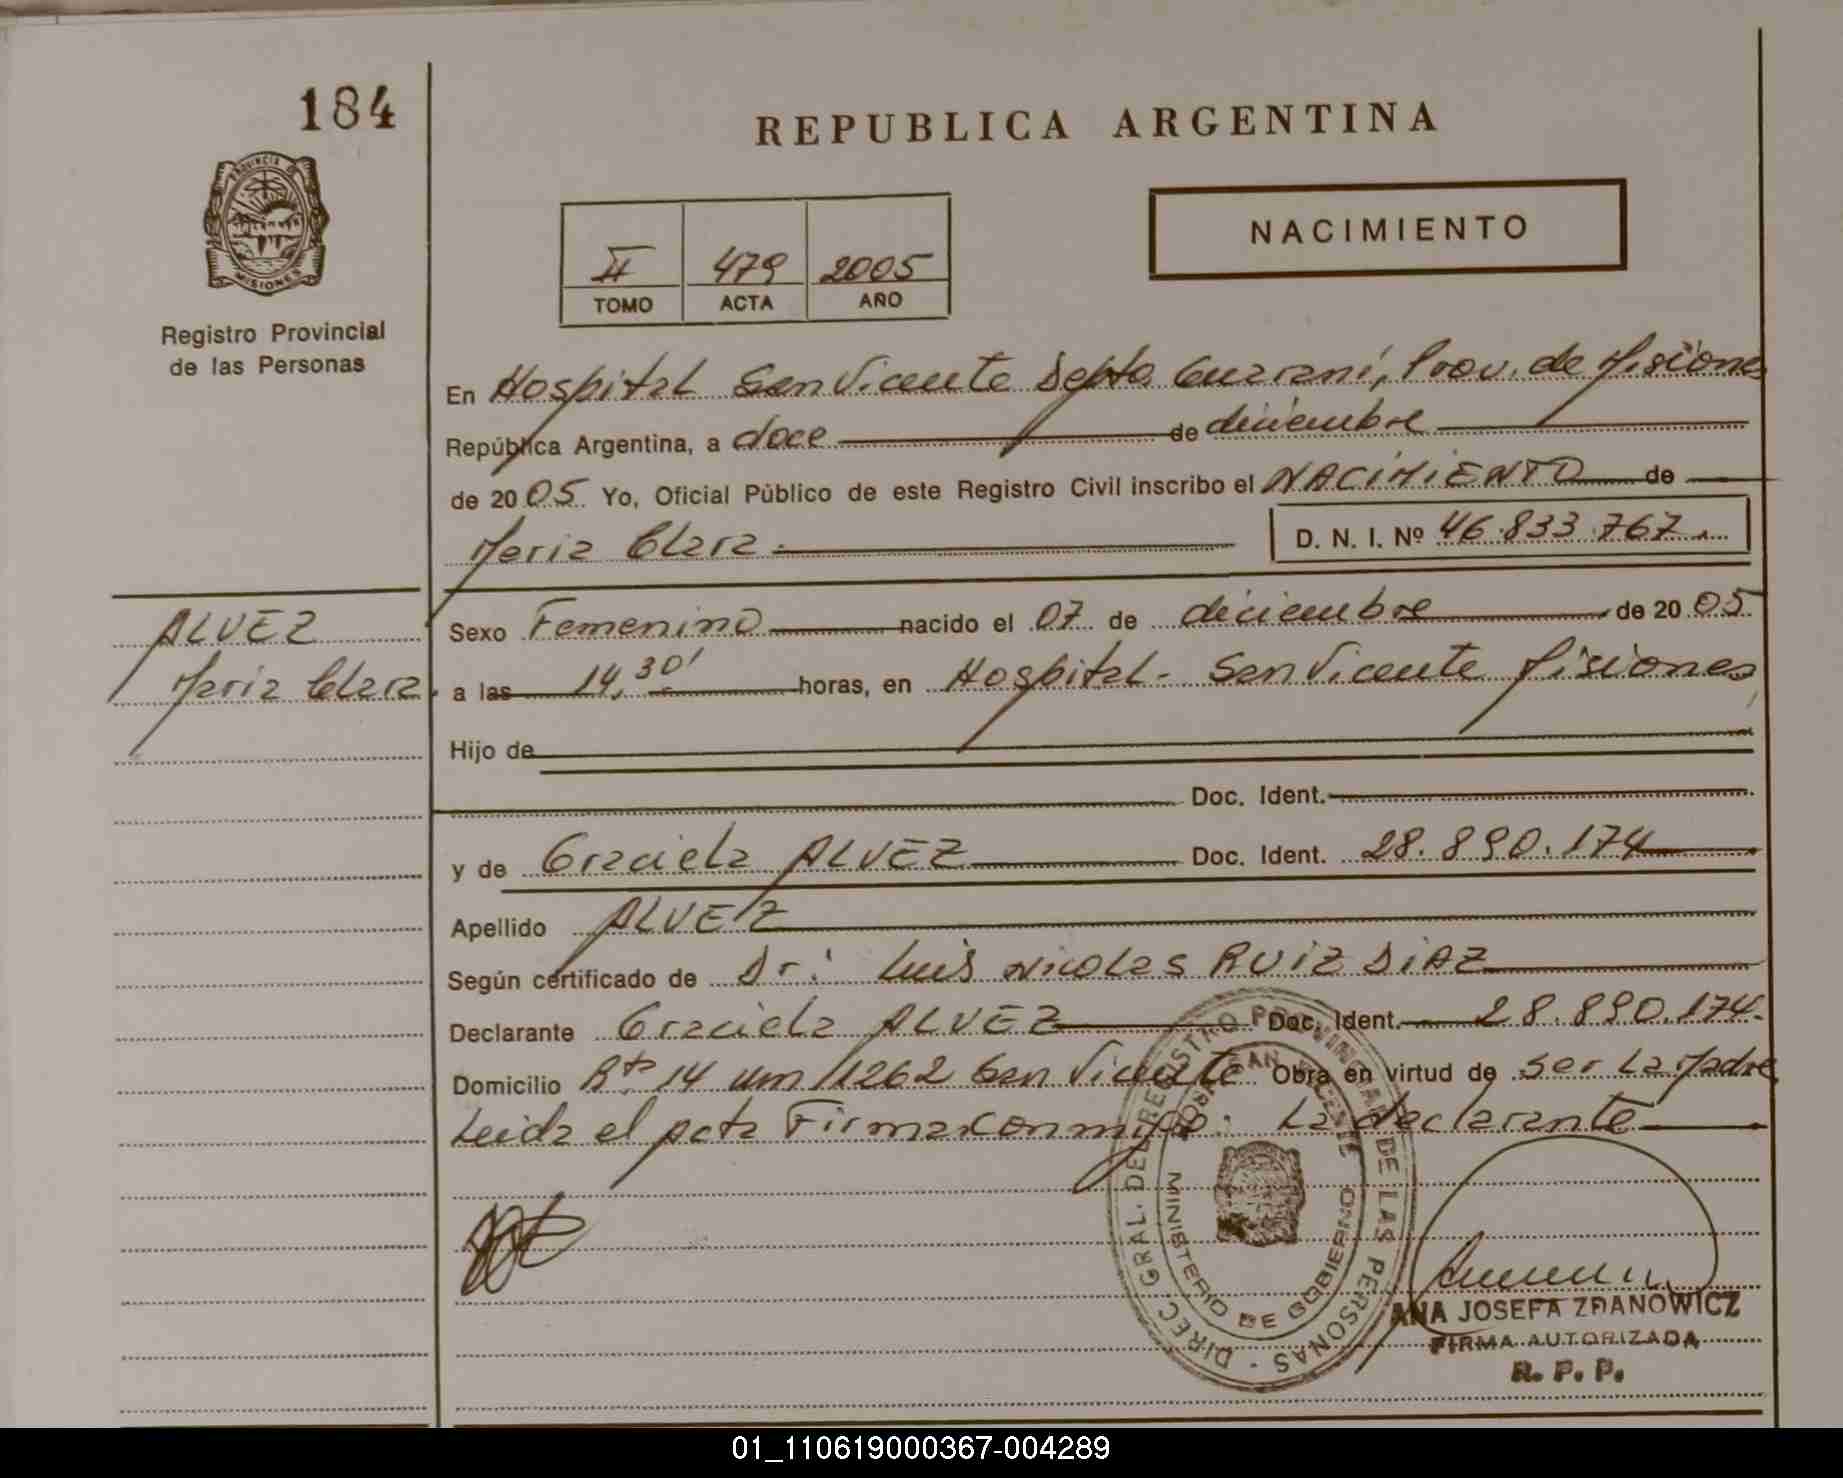 184
REPUBLICA ARGENTINA
PROVINCIA DE
MISIONES
Registro Provincial
de las Personas
II 479 2005
TOMO ACTA AÑO
NACIMIENTO
En Hospital San Vicente Depto Guaraní, Prov. de Misiones
República Argentina, a doce de diciembre
de 2005 Yo, Oficial Público de este Registro Civil inscribo el NACIMIENTO de
Maria Clara D. N. I. Nº 46.833.767
ALVEZ
Maria Clara
Sexo Femenino nacido el 07 de diciembre de 2005
a las 14,30' horas, en Hospital - San Vicente Misiones
Hijo de
Doc. Ident.
y de Graciela ALVEZ Doc. Ident. 28.890.174
Apellido ALVEZ
Según certificado de Dr: Luis Nicolas RUIZ DIAZ
Declarante Graciela ALVEZ Doc. Ident. 28.890.174.
Domicilio Rta 14 Km 1262 San Vicente Obra en virtud de ser La Madre
Leida el acta Firman conmigo: La declarante
DIREC. GRAL. DEL REGISTRO PROVINCIAL DE LAS PERSONAS -
SAN VICENTE
MINISTERIO DE GOBIERNO
ANA JOSEFA ZDANOWICZ
FIRMA AUTORIZADA
R. P. P.
01_110619000367-004289